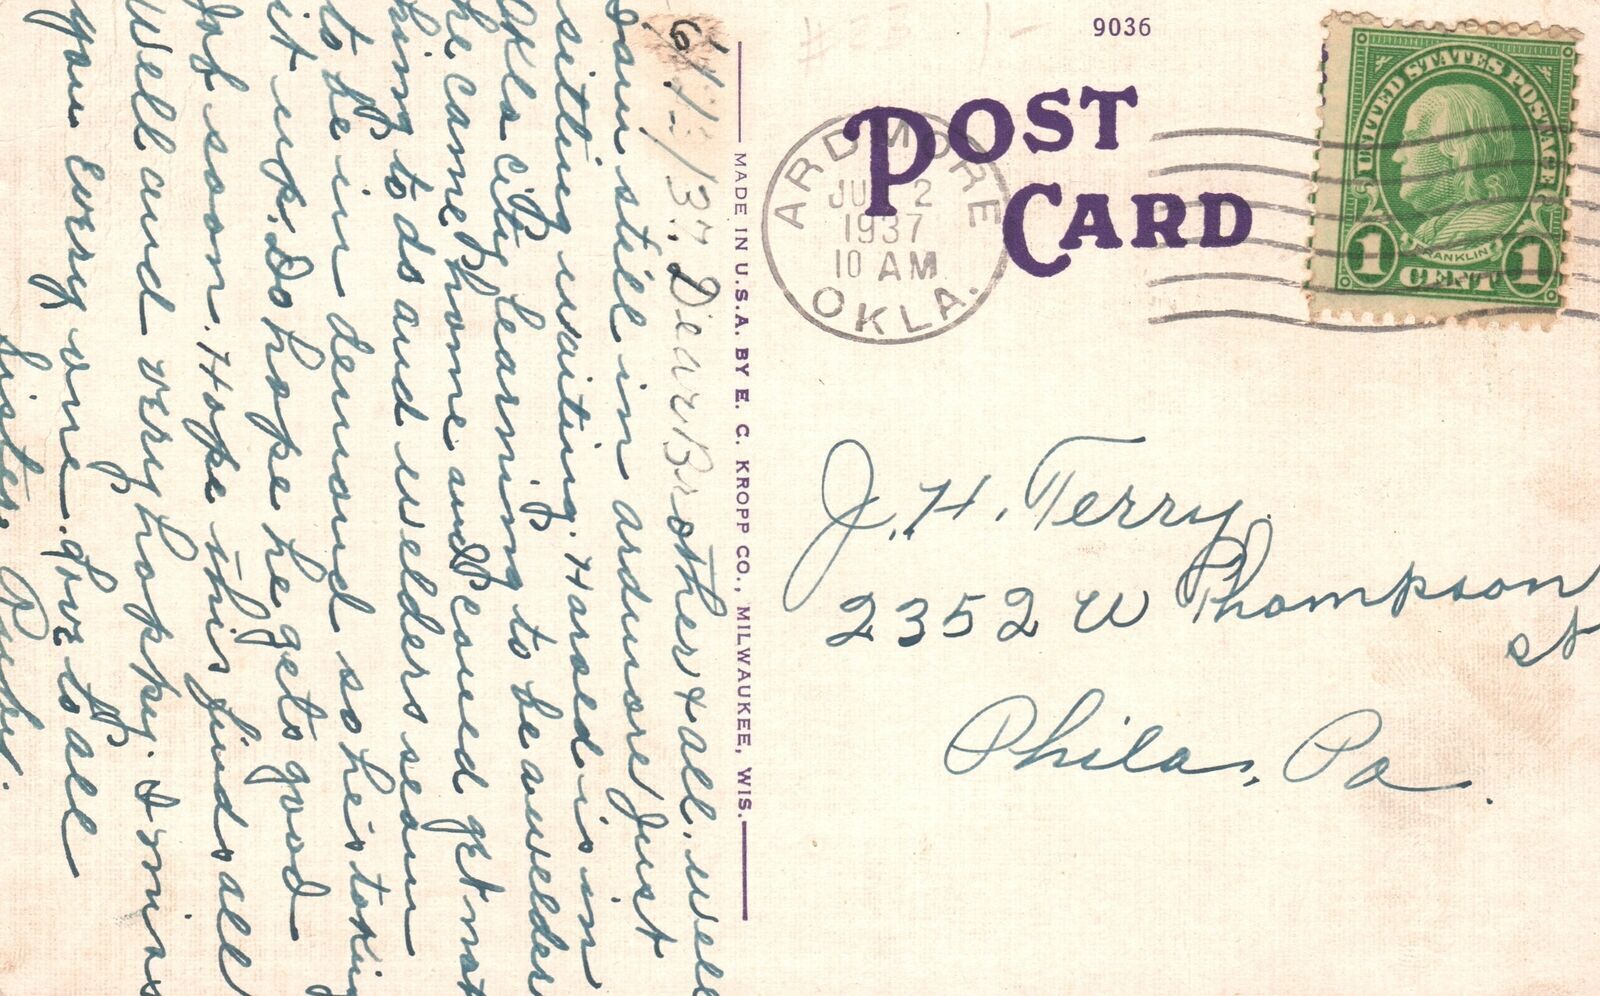 6/1/37. Dear Brother & all. well
I am still in ardmore Just
siting waiting. Harold is in
Okla City learning to be a welder
he came home and coued get not
hing to do and welders seam
to be in demand so he is taking
it up. Do hope he gets good
Job soon. Hope this finds all
Well and very happy. I miss
you Every one. Love to all
Sister Ruby.
MADE IN U.S.A. BY E. C. KROPP CO., MILWAUKEE, WIS.
9036
POST CARD
ARDMORE
2
1937
10 AM
OKLA.
UNITED STATES POSTAGE
FRANKLIN
1 CENT 1
J. H. Terry.
2352 W Thompson
st
Phila, Pa.